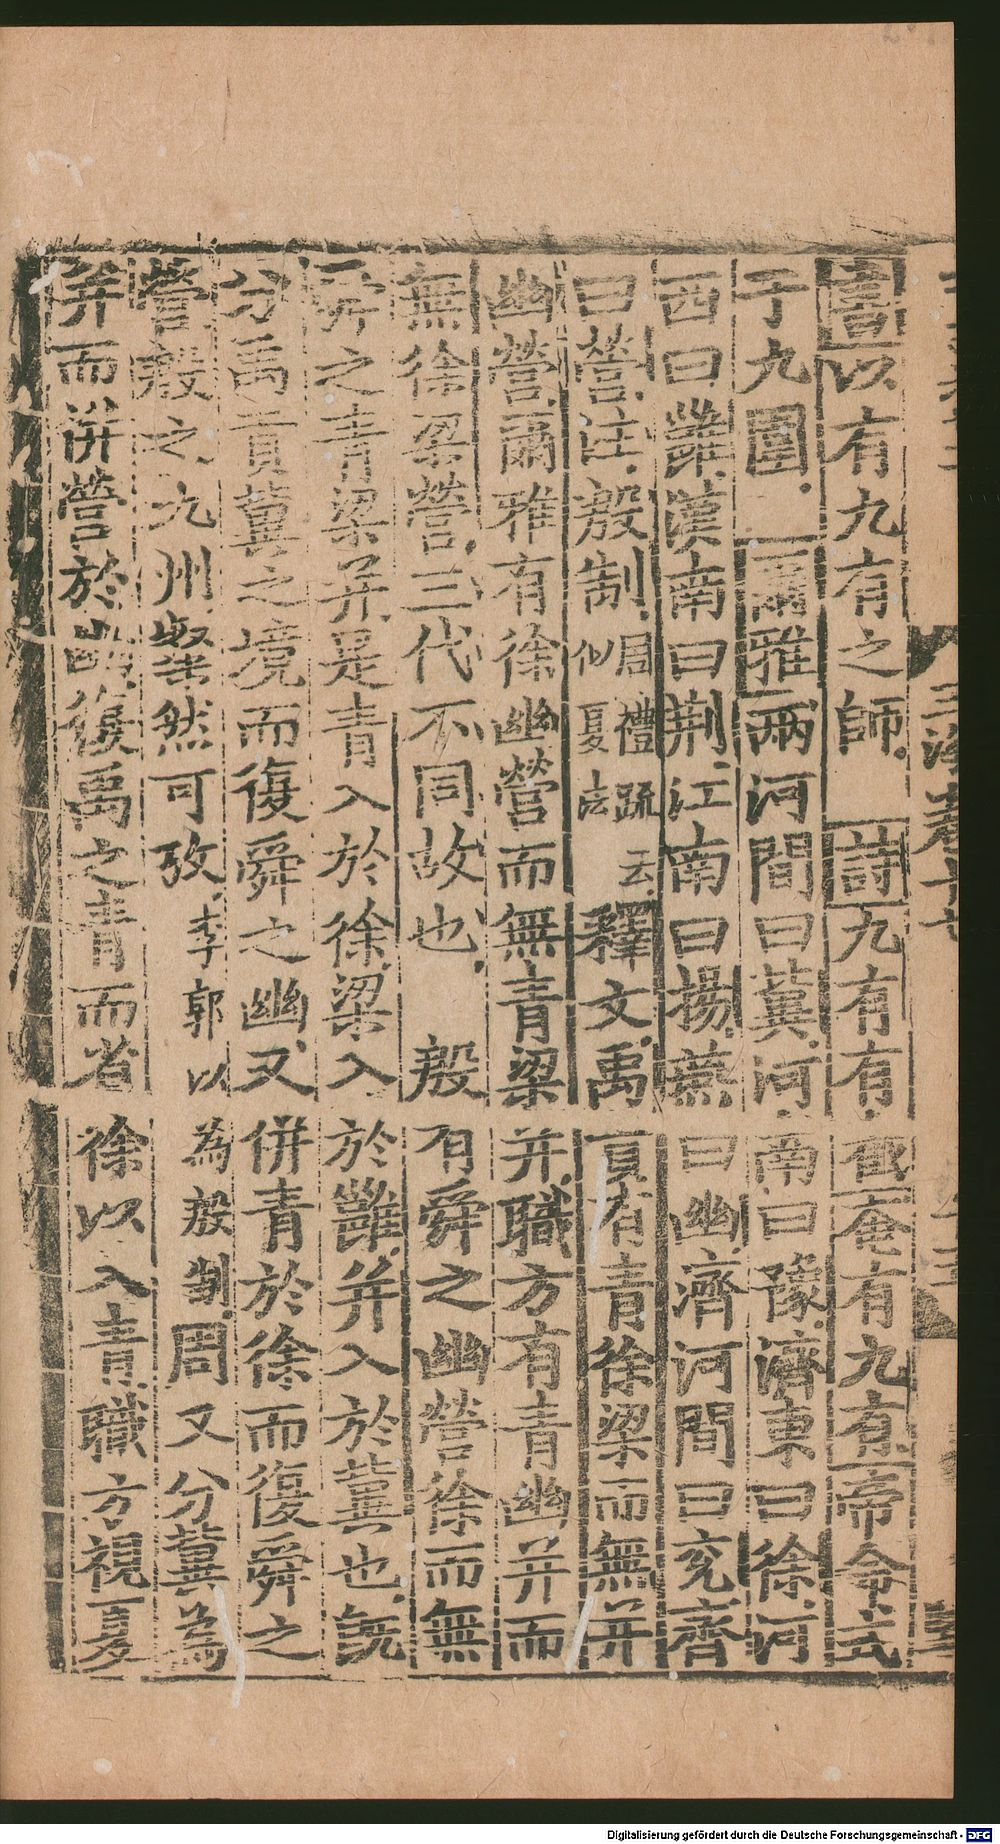 書以有九有之師詩九有有截奄有九有帝命式
于九圍爾雅兩河間曰冀河南曰豫濟東曰徐河
西曰雝漢南曰荆江南曰揚燕曰幽濟河間曰兖齊
曰營注殷制周禮疏云似夏法釋文禹貢有青徐梁而無并
幽營爾雅有徐幽營而無青梁并職方有青幽并而
無徐梁營三代不同故也殷有舜之幽營徐而無
舜之青梁并是青入於徐梁入於雝并入於冀也既
分禹貢冀之境而復舜之幽又併青於徐而復舜之
營殷之九州粲然可攷李郭以為殷制周又分冀為
并而併營於幽復禹之青而省徐以入青職方視夏
Digitalisierung gefördert durch die Deutsche Forschungsgemeinschaft - DFG